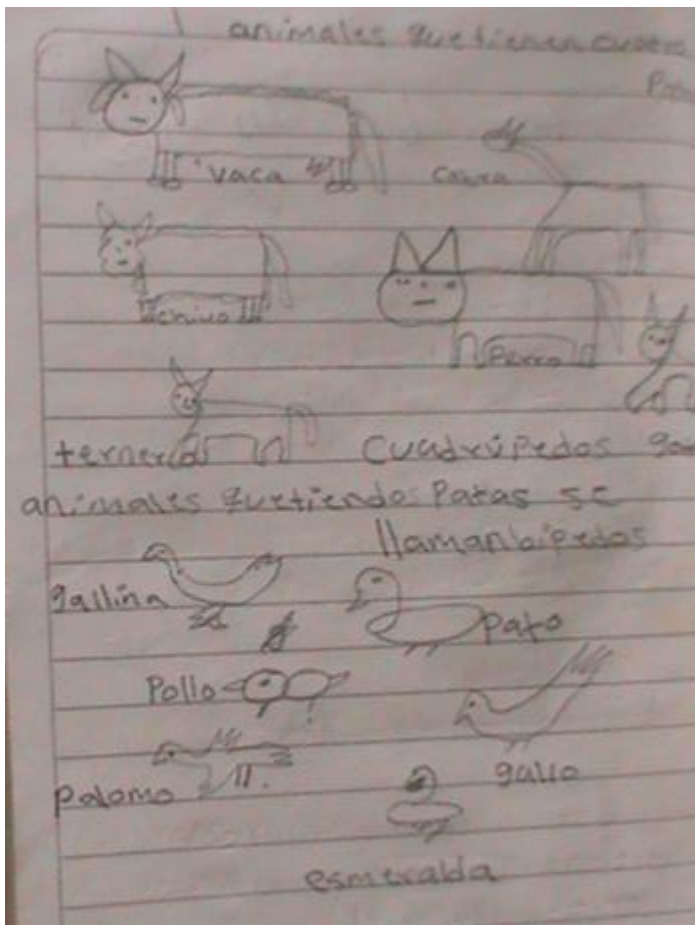 animales que tienen cuatro
vaca
cabra
chivo
Perro
ternero
Cuadrúpedos
animales quetiendos Patas se
llamanbipedos
gallina
pato
Pollo
gallo
palomo
esmeralda